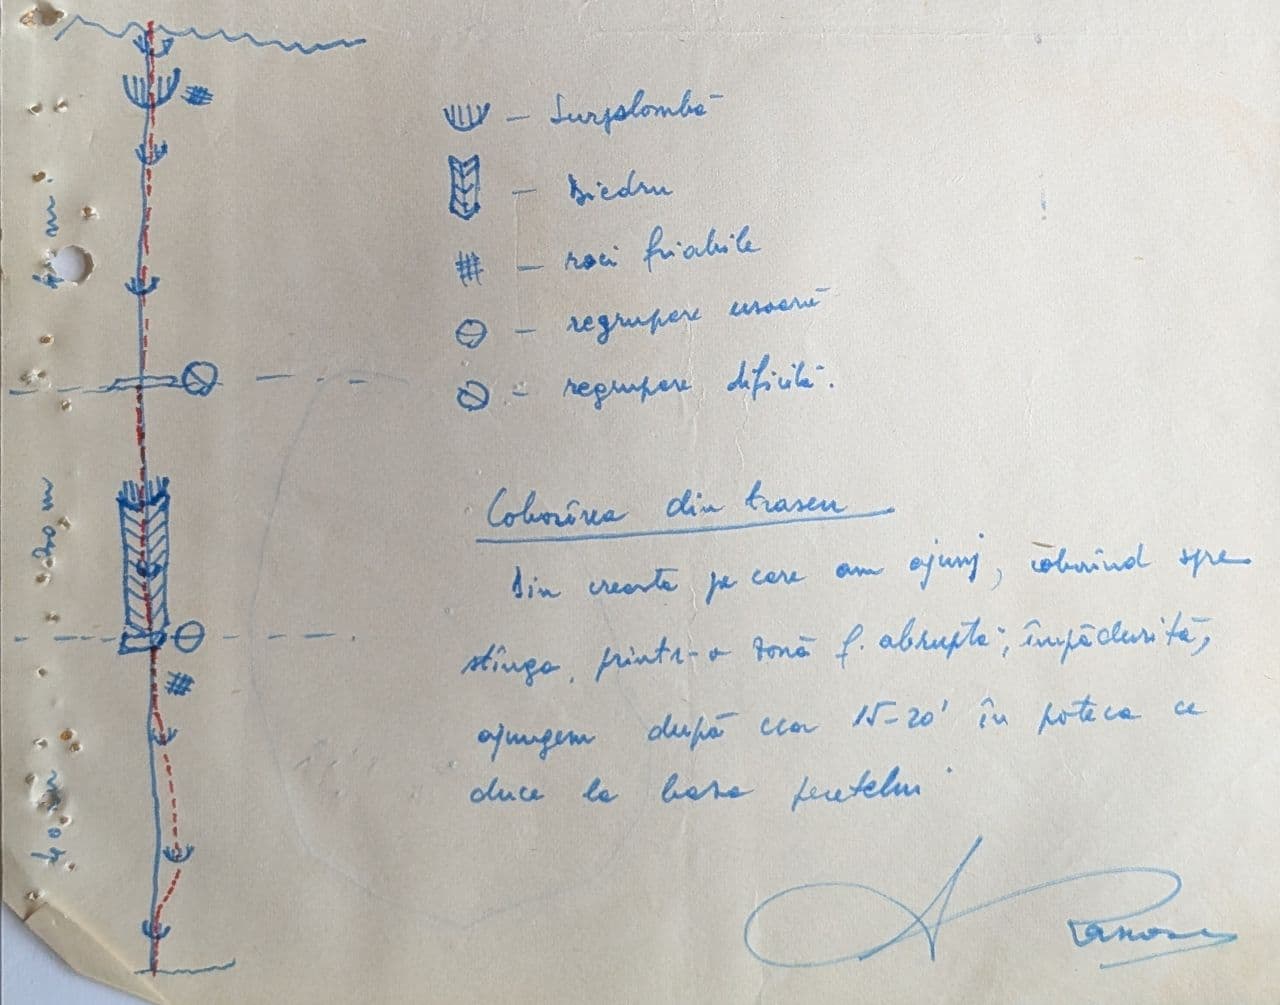 – Surplombă
– Diedru
– roci friabile
– regrupare usoară
– regrupare dificilă.
Coborîrea din traseu
Din creasta pe care am ajuns, coborînd spre
stînga, printr-o zonă f. abruptă, împădurită,
ajungem după cca 15-20' în poteca ce
duce la baza peretelui
m.
20 m
40 m